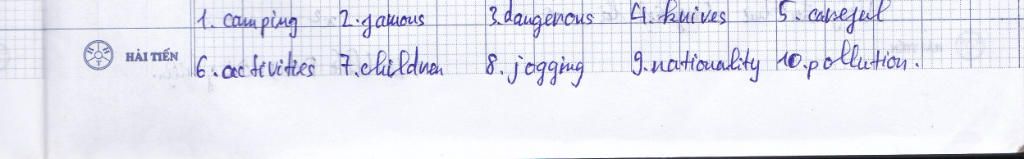 1. camping 2. famous 3. dangerous 4. knives 5. careful
HẢI TIẾN
6. activities 7. children 8. jogging 9. nationality 10. pollution.